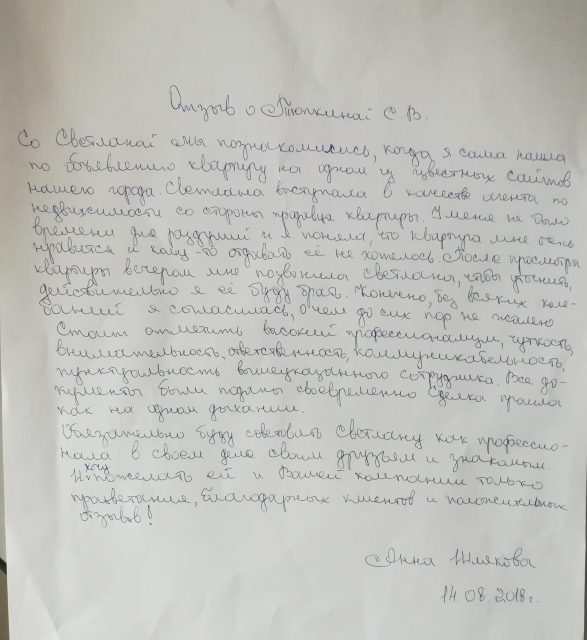 Отзыв о Тюпкиной С В.
Со Светланой мы познакомились, когда я сама нашла
по объявлению квартиру на одном из известных сайтов
нашего города. Светлана выступала в качестве агента по
недвижимости со стороны продавца квартиры. У меня не было
времени для раздумий и я поняла, что квартира мне очень
нравится и кому-то отдавать её не хотелось. После просмотра
квартиры вечером мне позвонила Светлана, чтобы уточнить,
действительно я её буду брать. Конечно, без всяких коле-
баний я согласилась, о чем до сих пор не жалею.
Стоит отметить высокий профессионализм, чуткость,
внимательность, ответственность, коммуникабельность,
пунктуальность вышеуказанного сотрудника. Все до-
кументы были поданы своевременно. Сделка прошла
как на одном дыхании.
Обязательно буду советовать Светлану как профессио-
нала в своем деле своим друзьям и знакомым
И хочу пожелать ей и Вашей компании только
процветания, благодарных клиентов и положительных
отзывов!
Анна Шлякова
14.08.2018г.